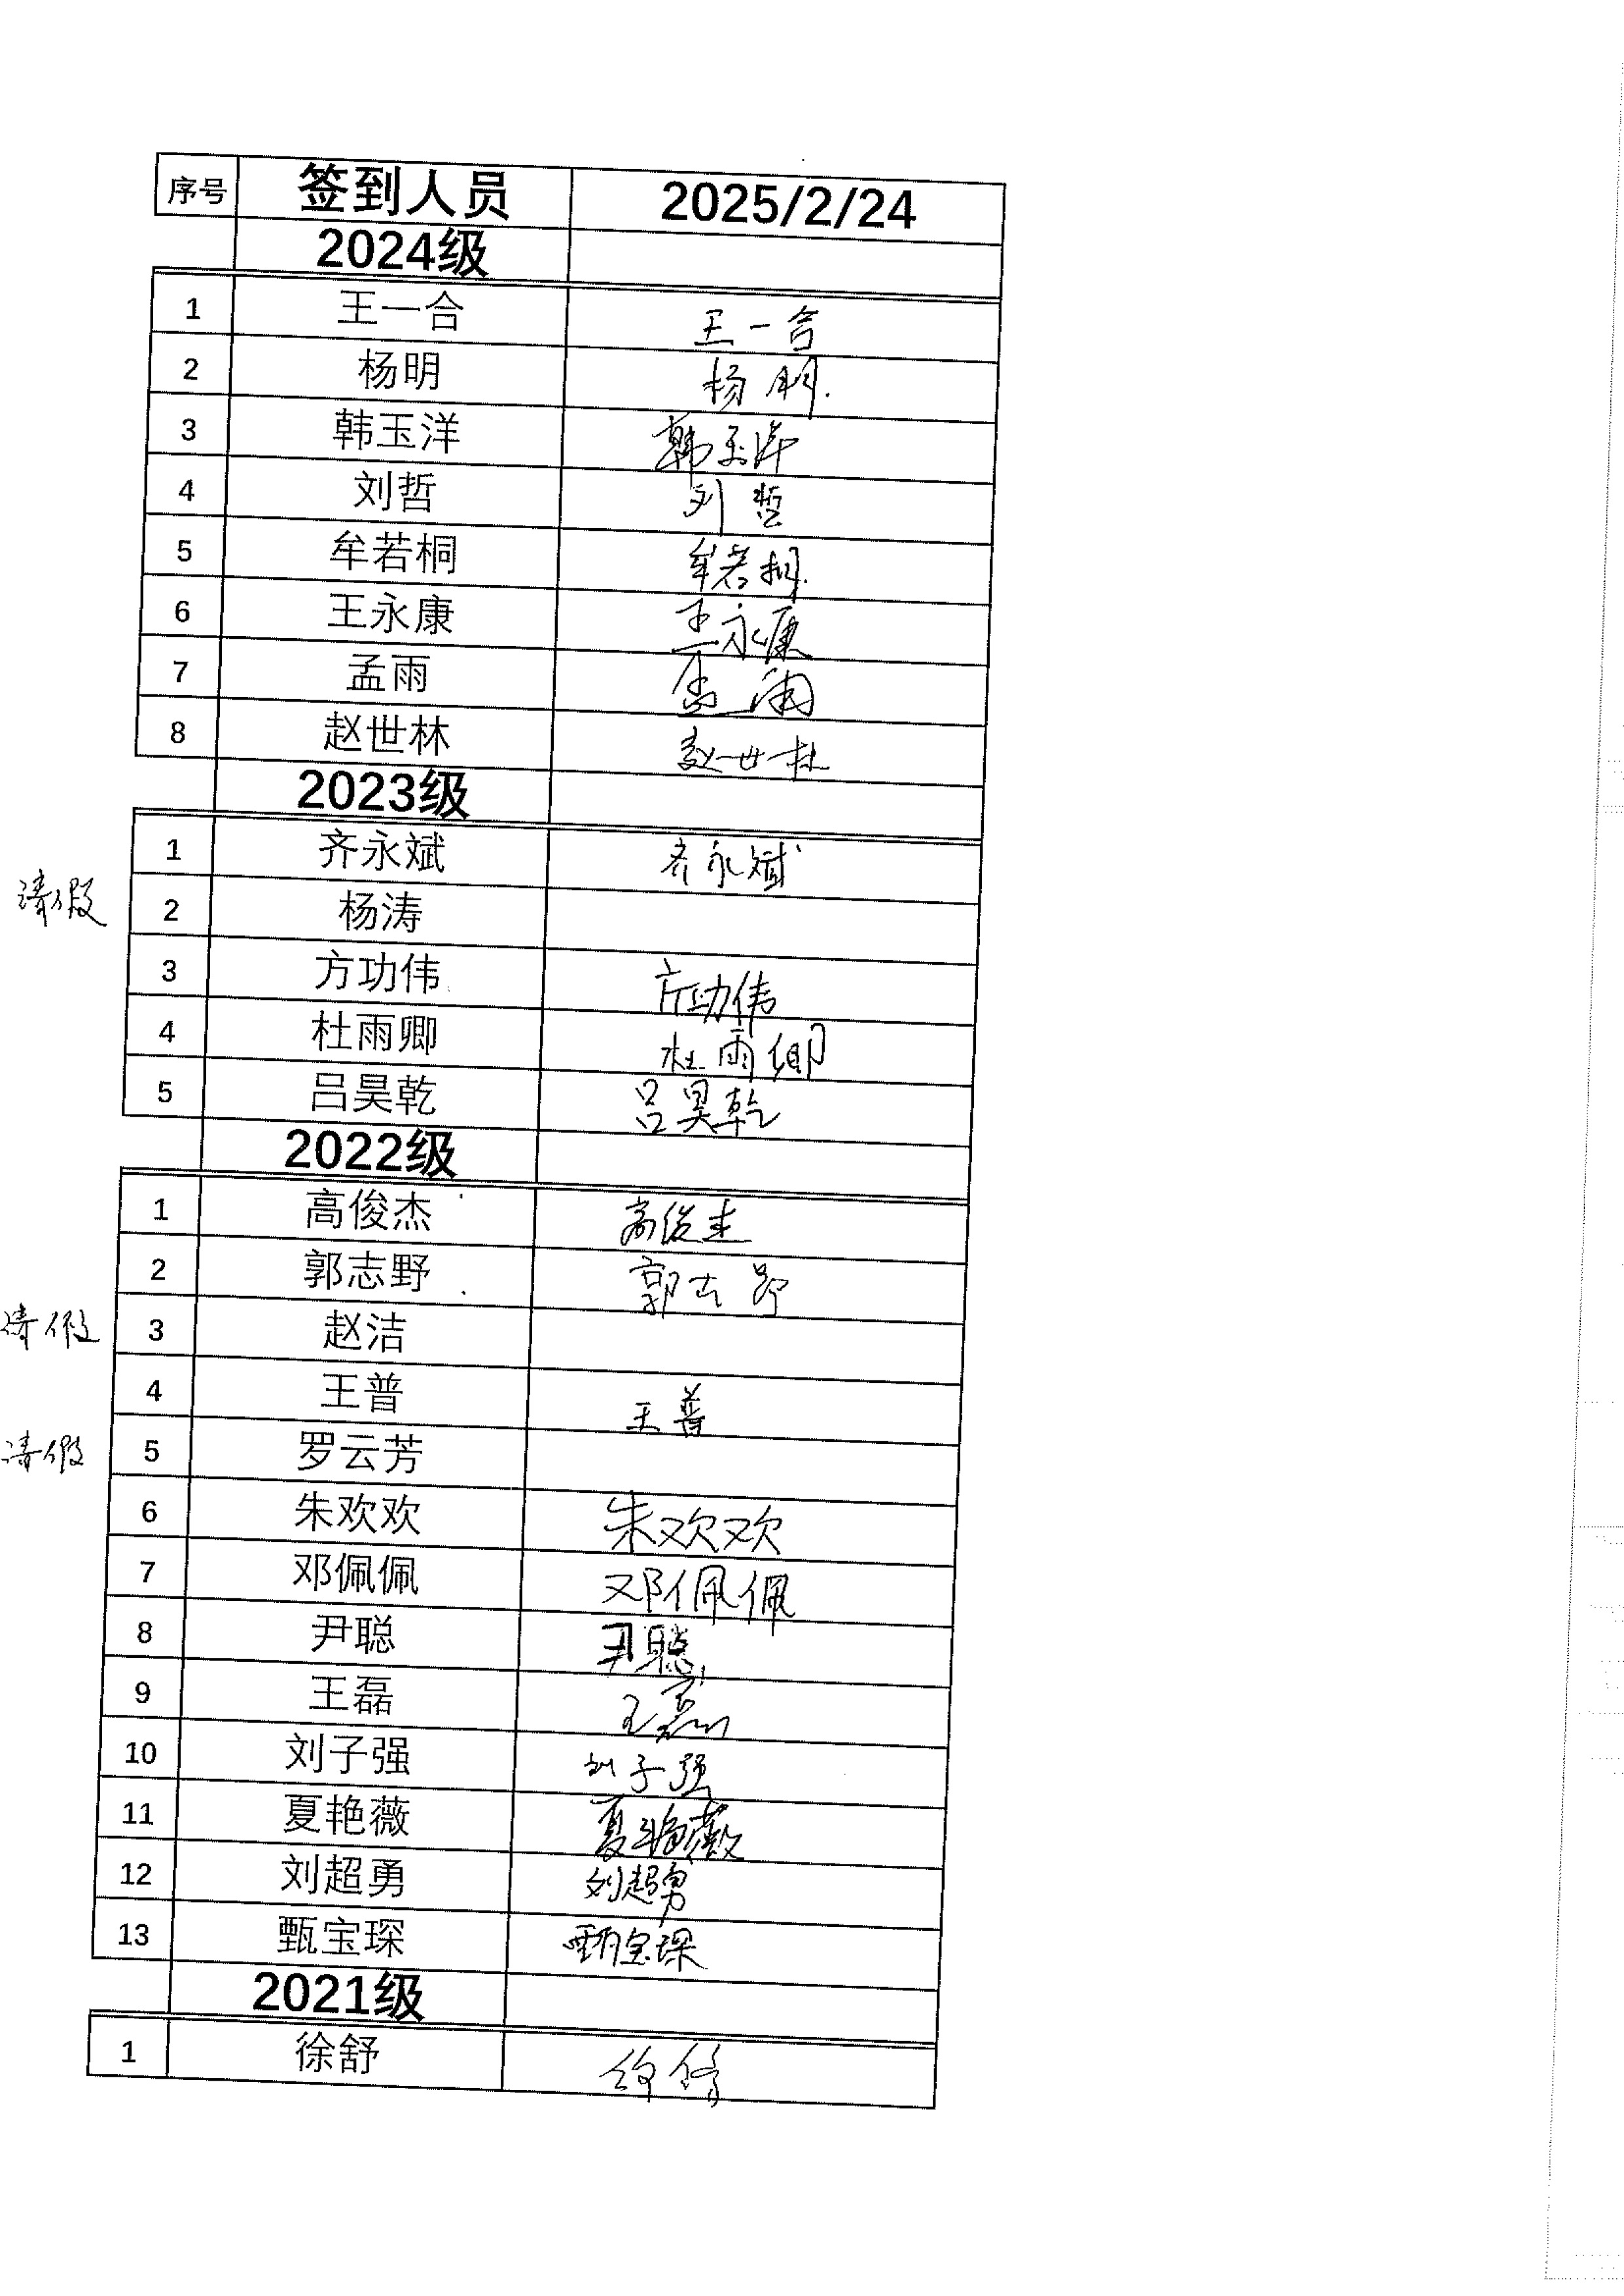 序号 签到人员 2025/2/24
2024级
1 王一合 王一合
2 杨明 杨明.
3 韩玉洋 韩玉洋
4 刘哲 刘哲
5 牟若桐 牟若桐.
6 王永康 王永康
7 孟雨 孟雨
8 赵世林 赵世林
2023级
1 齐永斌 齐永斌
请假 2 杨涛
3 方功伟 方功伟
4 杜雨卿 杜雨卿
5 吕昊乾 吕昊乾
2022级
1 高俊杰 高俊杰
2 郭志野 郭志野
请假 3 赵洁
4 王普 王普
请假 5 罗云芳
6 朱欢欢 朱欢欢
7 邓佩佩 邓佩佩
8 尹聪 尹聪
9 王磊 王磊
10 刘子强 刘子强
11 夏艳薇 夏艳薇
12 刘超勇 刘超勇
13 甄宝琛 甄宝琛
2021级
1 徐舒 徐舒